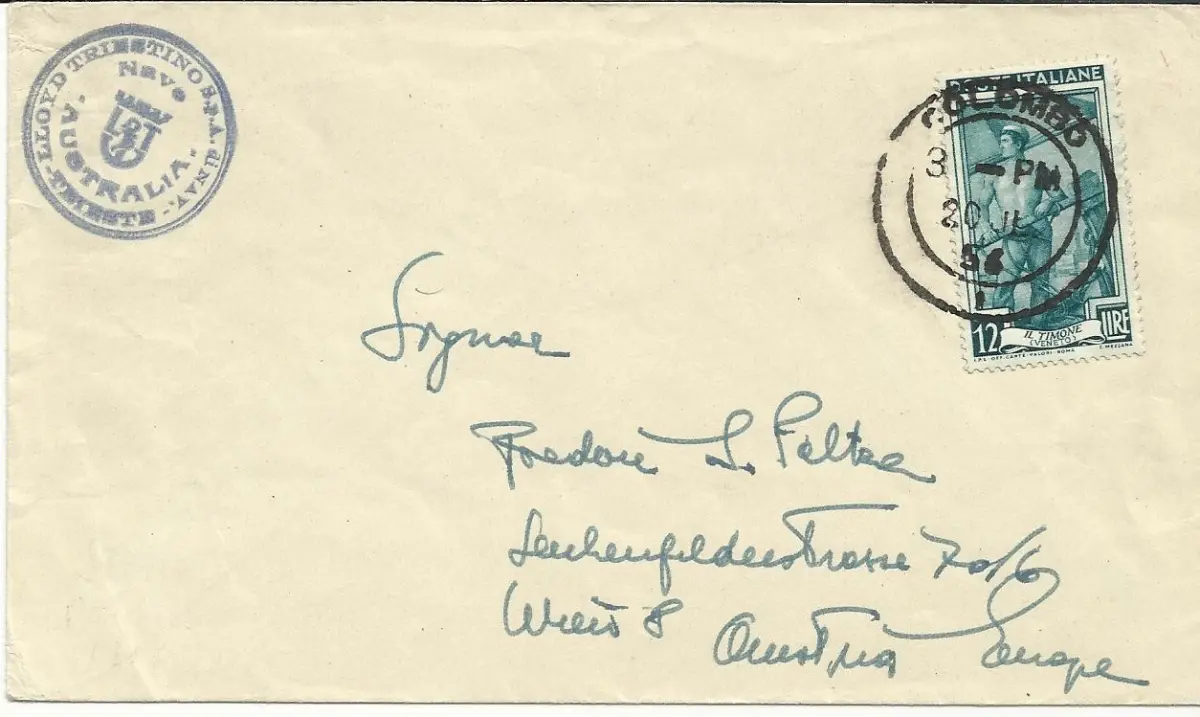 LLOYD TRIESTINO S.P.A. di NAV.
- TRIESTE -
Nave
AUSTRALIA.
POSTE ITALIANE
COLOMBO
3 - PM
20 JL
54
1
12 LIRE
IL TIMONE
(VENETO)
I.P.S. OFF. CARTE-VALORI-ROMA C. MEZZANA
L. Feltra
Lerchenfelderstrasse 70/6
Wien 8 Austria Europe